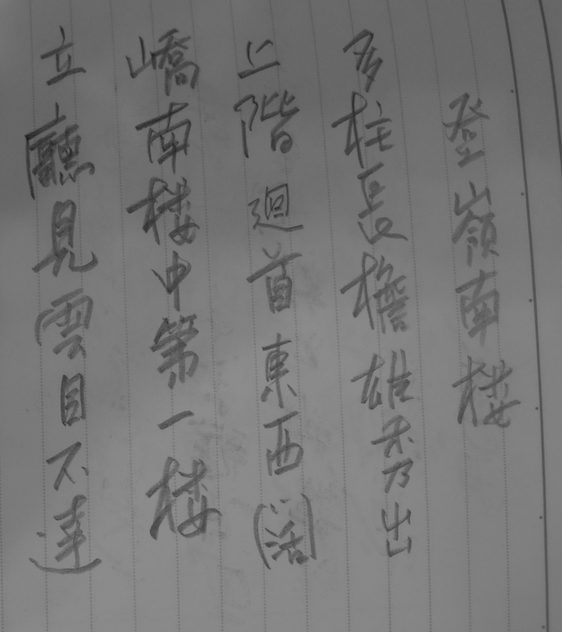 登嶺南楼
多柱長檐雄秀出
上階迴首東西(活)
嶠南楼中第一楼
立廳見雲目不達